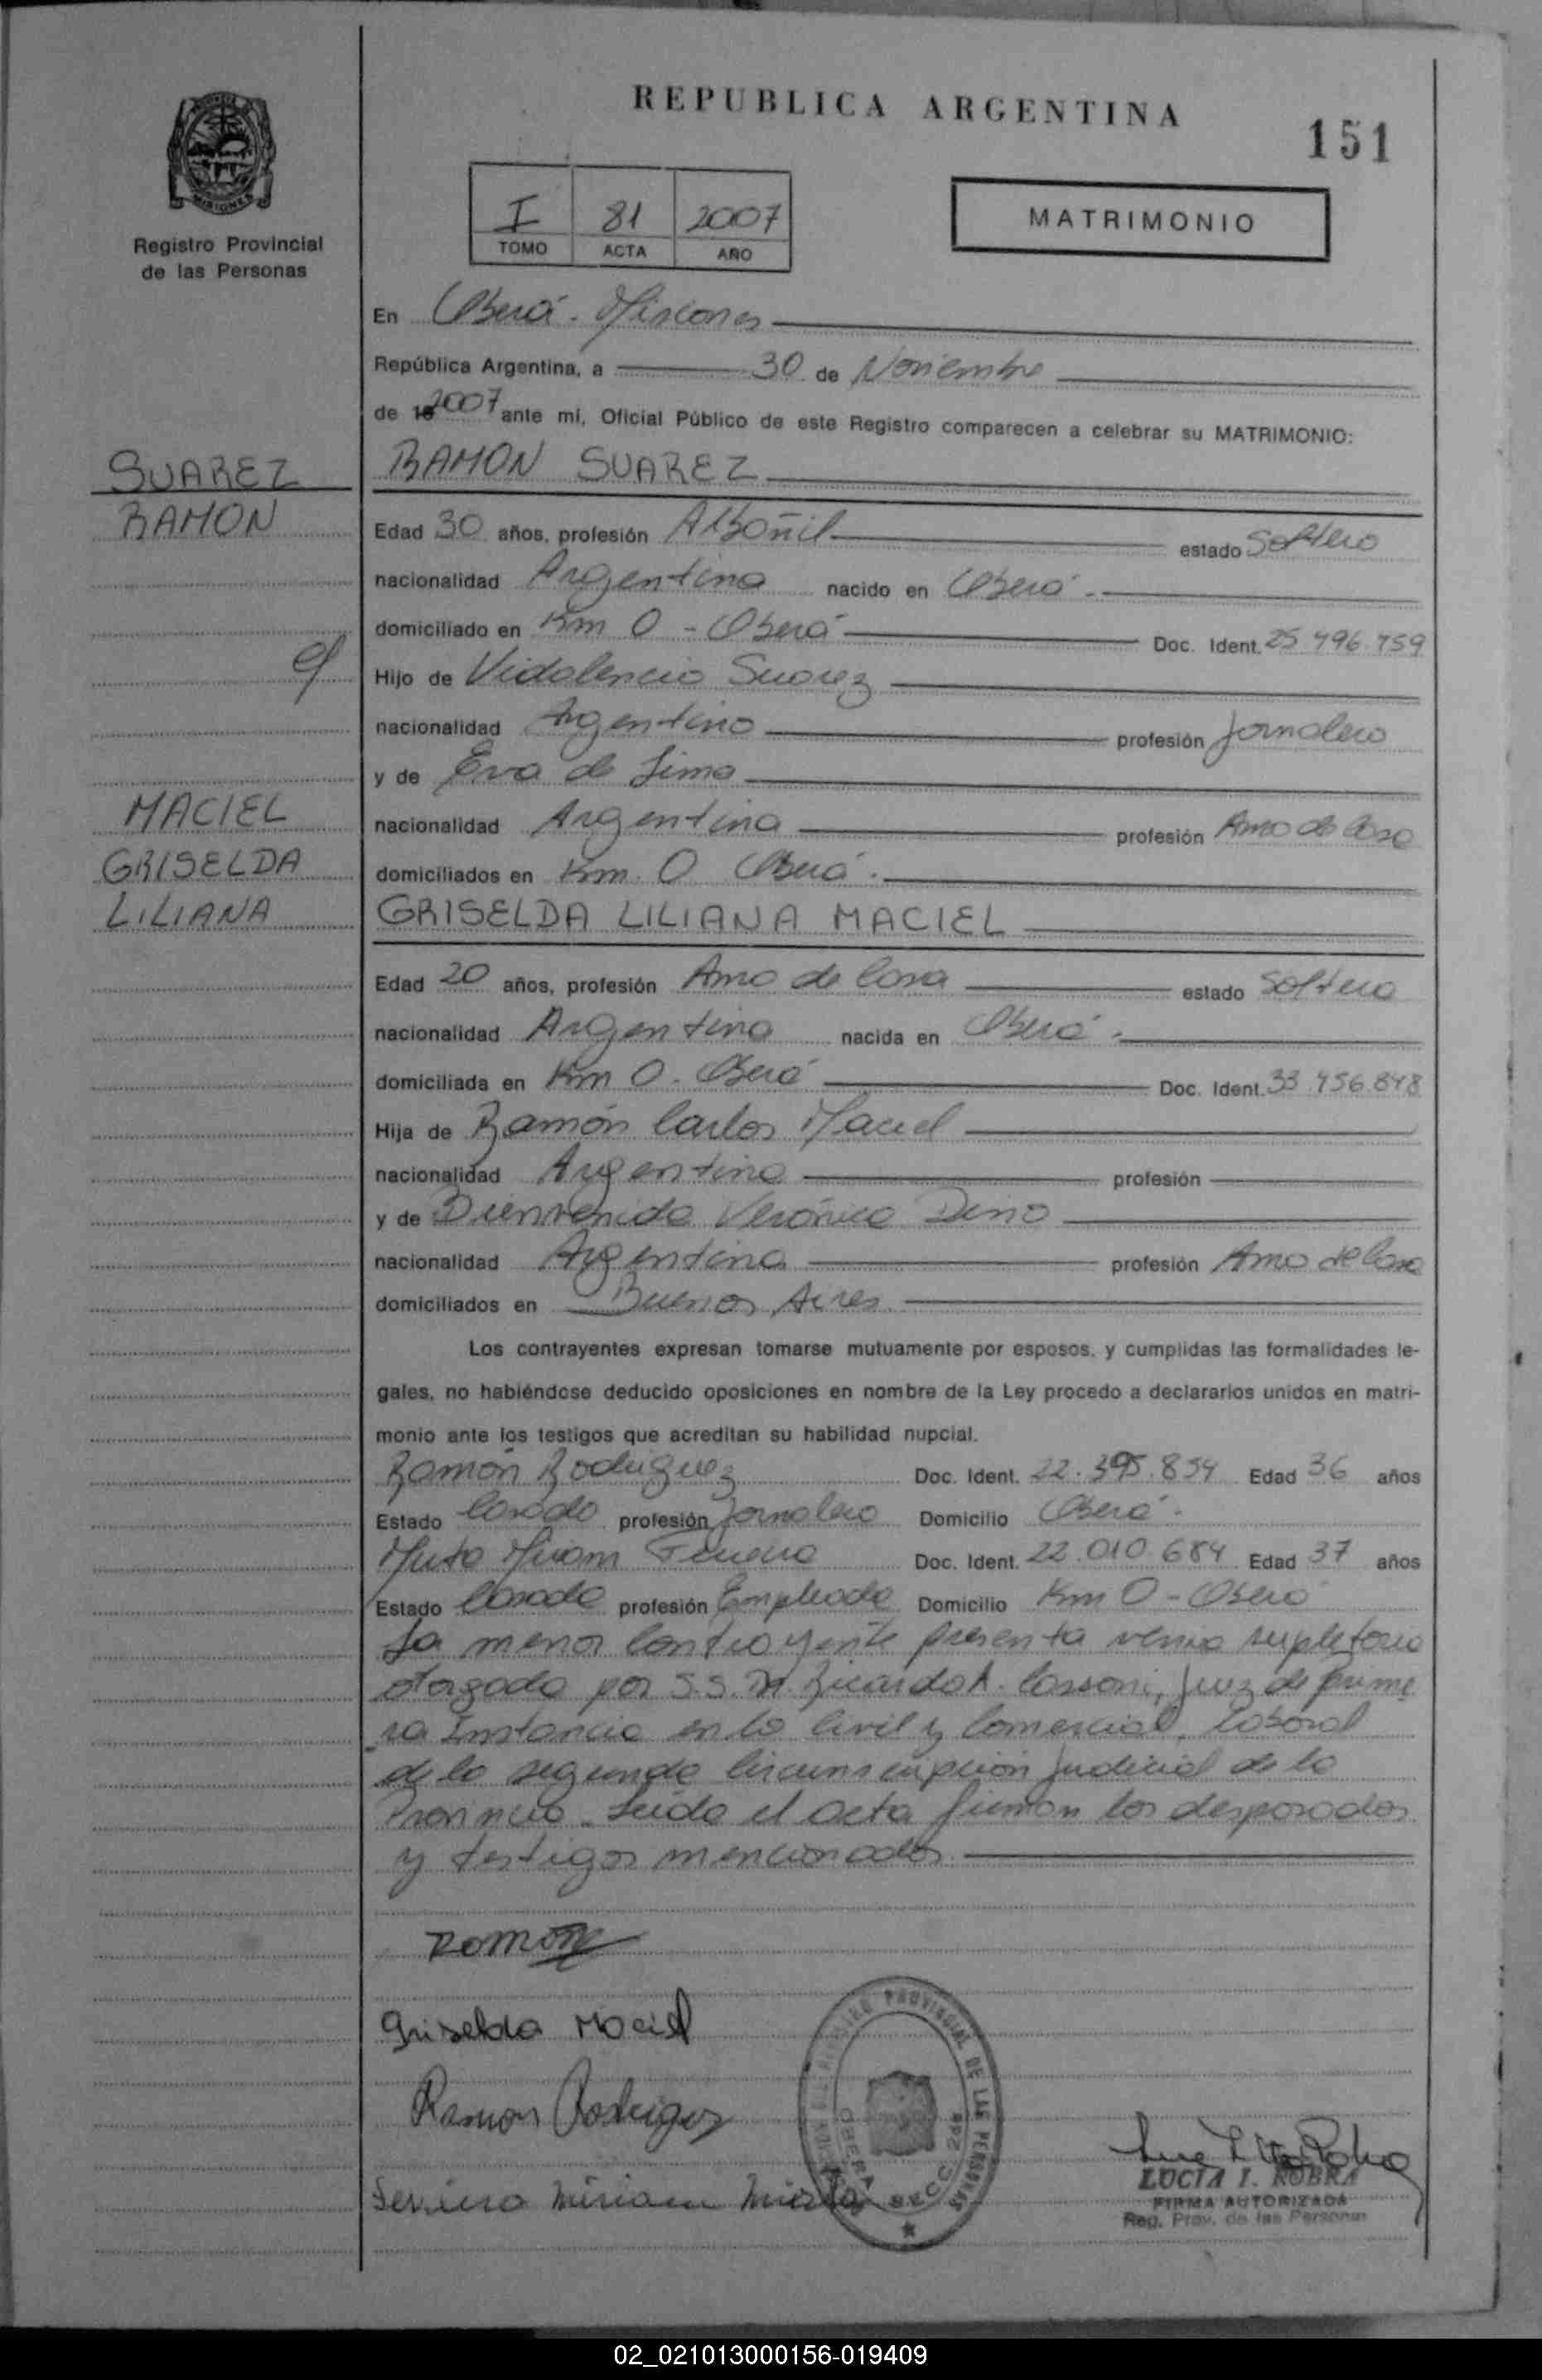 REPUBLICA ARGENTINA
151
MISIONES
Registro Provincial
de las Personas
I 81 2007
TOMO ACTA AÑO
MATRIMONIO
En Oberá - Misiones
República Argentina, a 30 de Noviembre
de 2007 ante mi, Oficial Público de este Registro comparecen a celebrar su MATRIMONIO:
SUAREZ
RAMON
RAMON SUAREZ
Edad 30 años, profesión Albañil estado Soltero
nacionalidad Argentina nacido en Oberá.
domiciliado en Km 0 - Oberá Doc. Ident. 25.496.759
Hijo de Vidalencio Suarez
nacionalidad Argentino profesión Jornalero
y de Eva de Lima
nacionalidad Argentina profesión Ama de Casa
domiciliados en Km. 0 Oberá.
MACIEL
GRISELDA
LILIANA
GRISELDA LILIANA MACIEL
Edad 20 años, profesión Ama de Casa estado Soltera
nacionalidad Argentina nacida en Oberá.
domiciliada en Km 0. Oberá Doc. Ident. 33.456.848
Hija de Ramón Carlos Maciel
nacionalidad Argentina profesión
y de Bienvenida Verónica
nacionalidad Argentina profesión Ama de Casa
domiciliados en Buenos Aires.
Los contrayentes expresan tomarse mutuamente por esposos, y cumplidas las formalidades le-
gales, no habiéndose deducido oposiciones en nombre de la Ley procedo a declararlos unidos en matri-
monio ante los testigos que acreditan su habilidad nupcial.
Ramón Rodriguez Doc. Ident. 22.395.854 Edad 36 años
Estado Casado profesión Jornalero Domicilio Oberá.
Mirta Miriam Doc. Ident. 22.010.684 Edad 37 años
Estado Casada profesión Empleada Domicilio Km 0 - Oberá
La menor Contrayente presenta venia supletoria
otorgada por S.S. Dr. Ricardo A. Cassoni, Juez de Prime
ra Instancia en lo Civil y Comercial, Laboral
de la segunda Circunscripción Judicial de la
Provincia. Leída el Acta firman los desposados
y testigos mencionados.
Ramon
Griselda Maciel
Ramon Rodriguez
Miriam Mirta
REGISTRO PROVINCIAL DE LAS PERSONAS
OBERA SECC.
LUCIA I. ROBRA
FIRMA AUTORIZADA
Reg. Prov. de las Personas
02_021013000156-019409